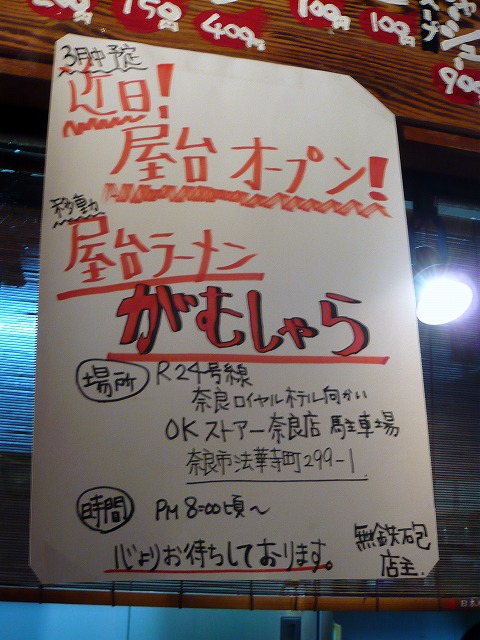 200円
150円
400円
100円
100円
900
3月中予定
近日!
屋台オープン!
移動
屋台ラーメン
がむしゃら
場所 R24号線
奈良ロイヤルホテル向かい
OKストアー奈良店 駐車場
奈良市法華寺町299-1
時間 PM 8:00頃〜
心よりお待ちしております。
無鉄砲
店主